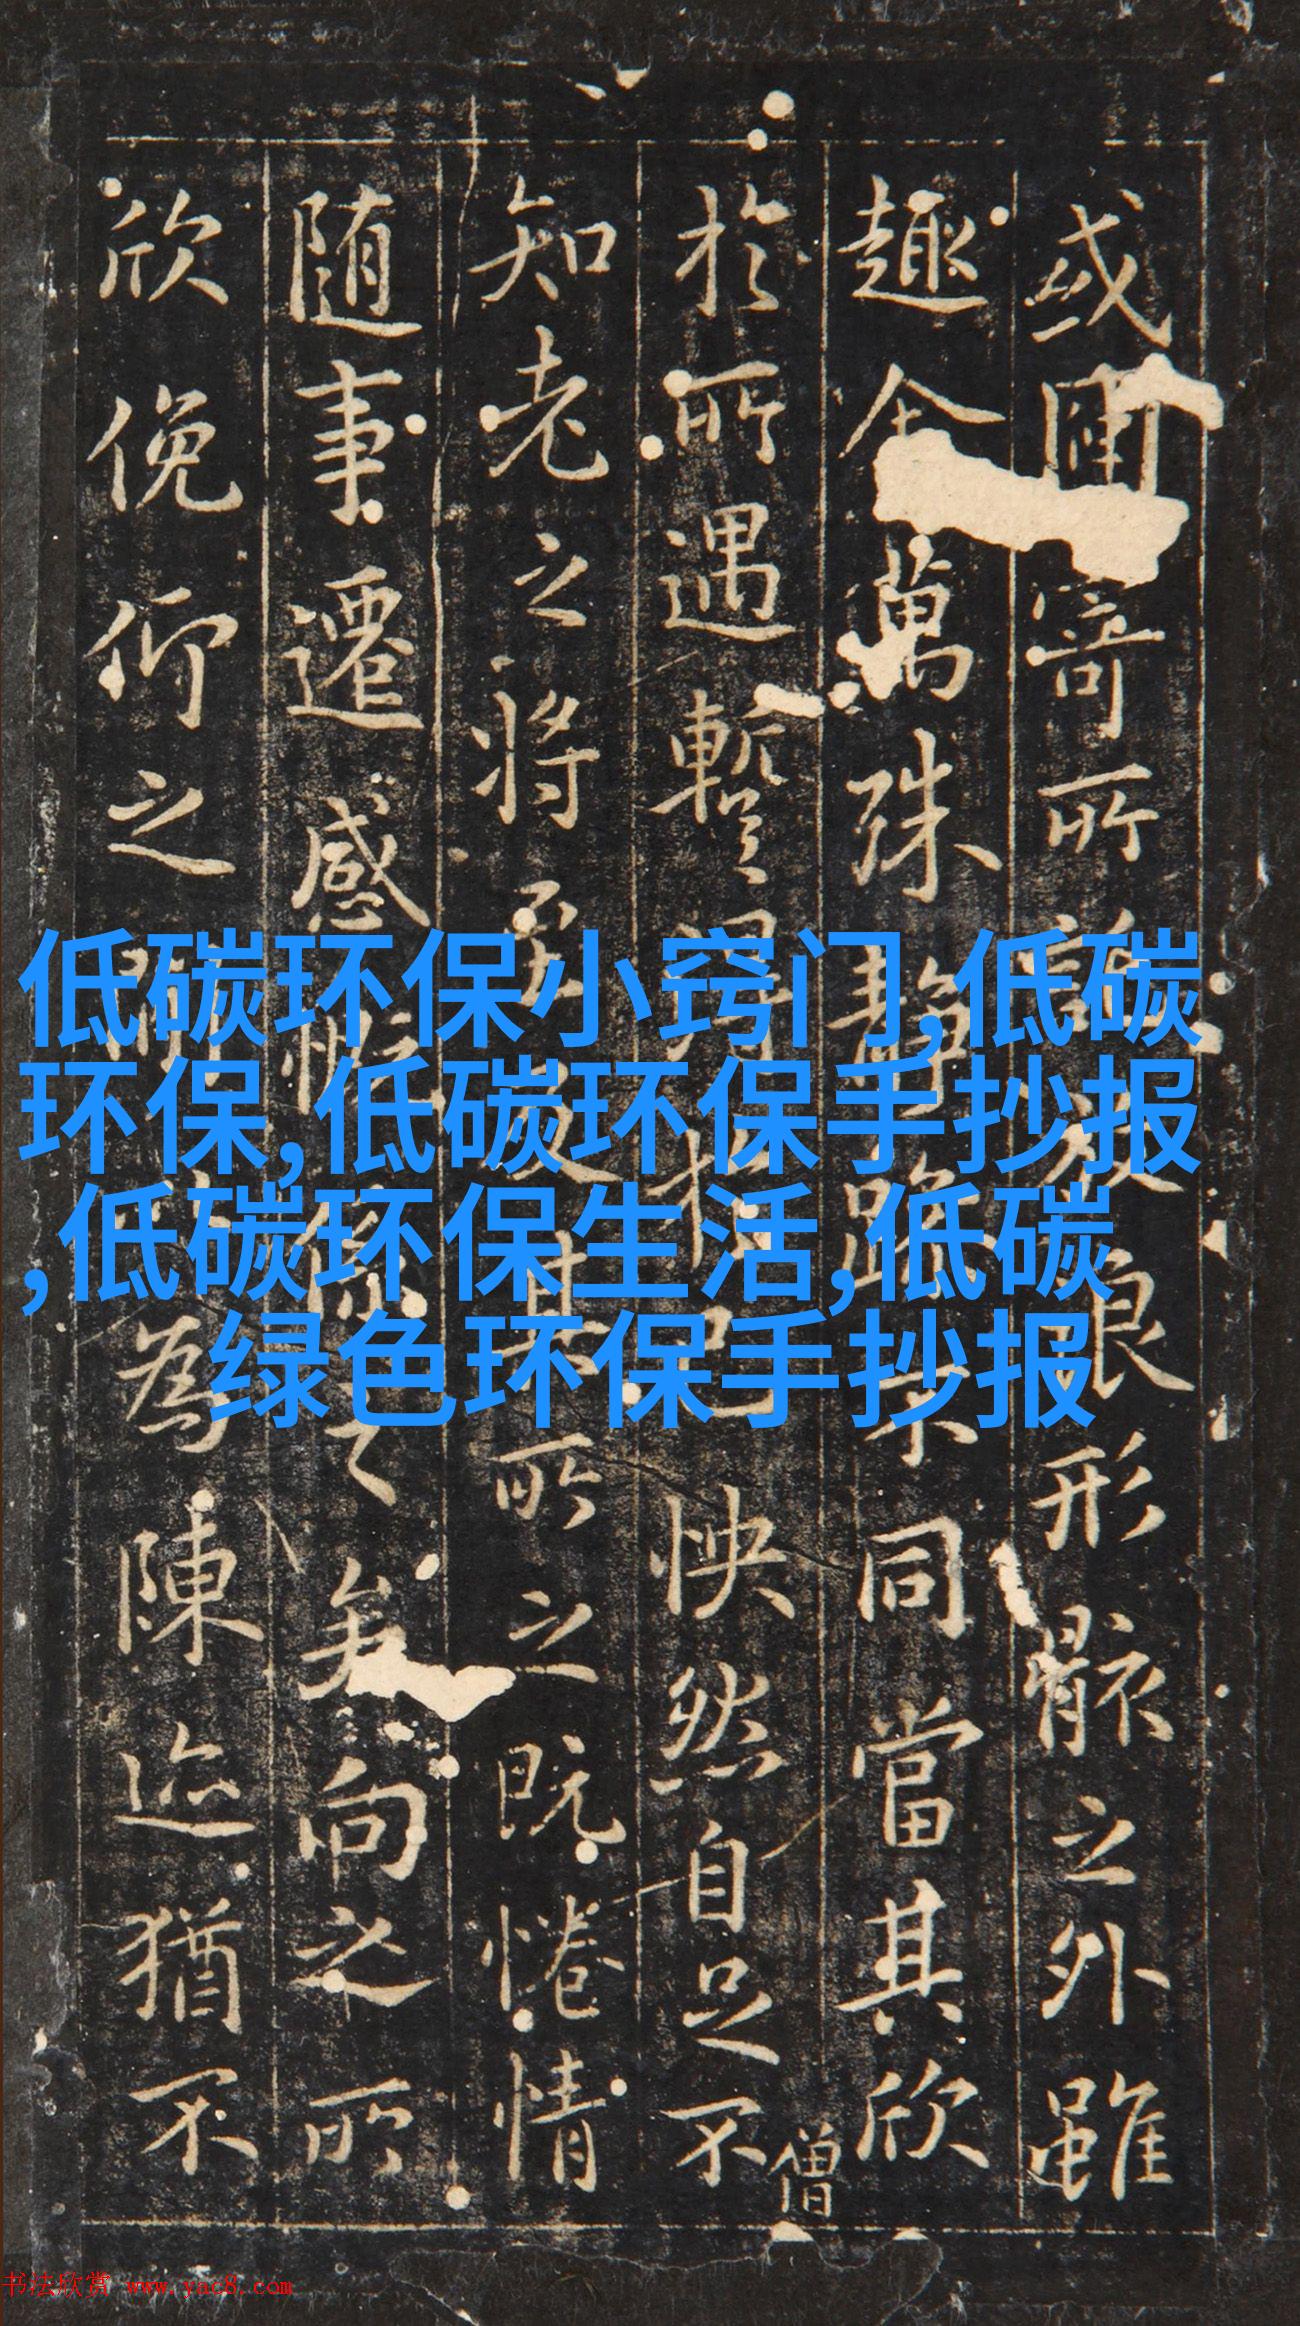 或因寄所託放浪形骸之外雖
趣舍萬殊靜躁不同當其欣
於所遇蹔得於己怏然自足不
僧
知老之將至及其所之既惓情
随事遷感慨係之矣向之所
欣俛仰之閒以為陳迹猶不
低碳环保小窍门,低碳
环保,低碳环保手抄报
,低碳环保生活,低碳
绿色环保手抄报
书法欣赏 www.yac8.com